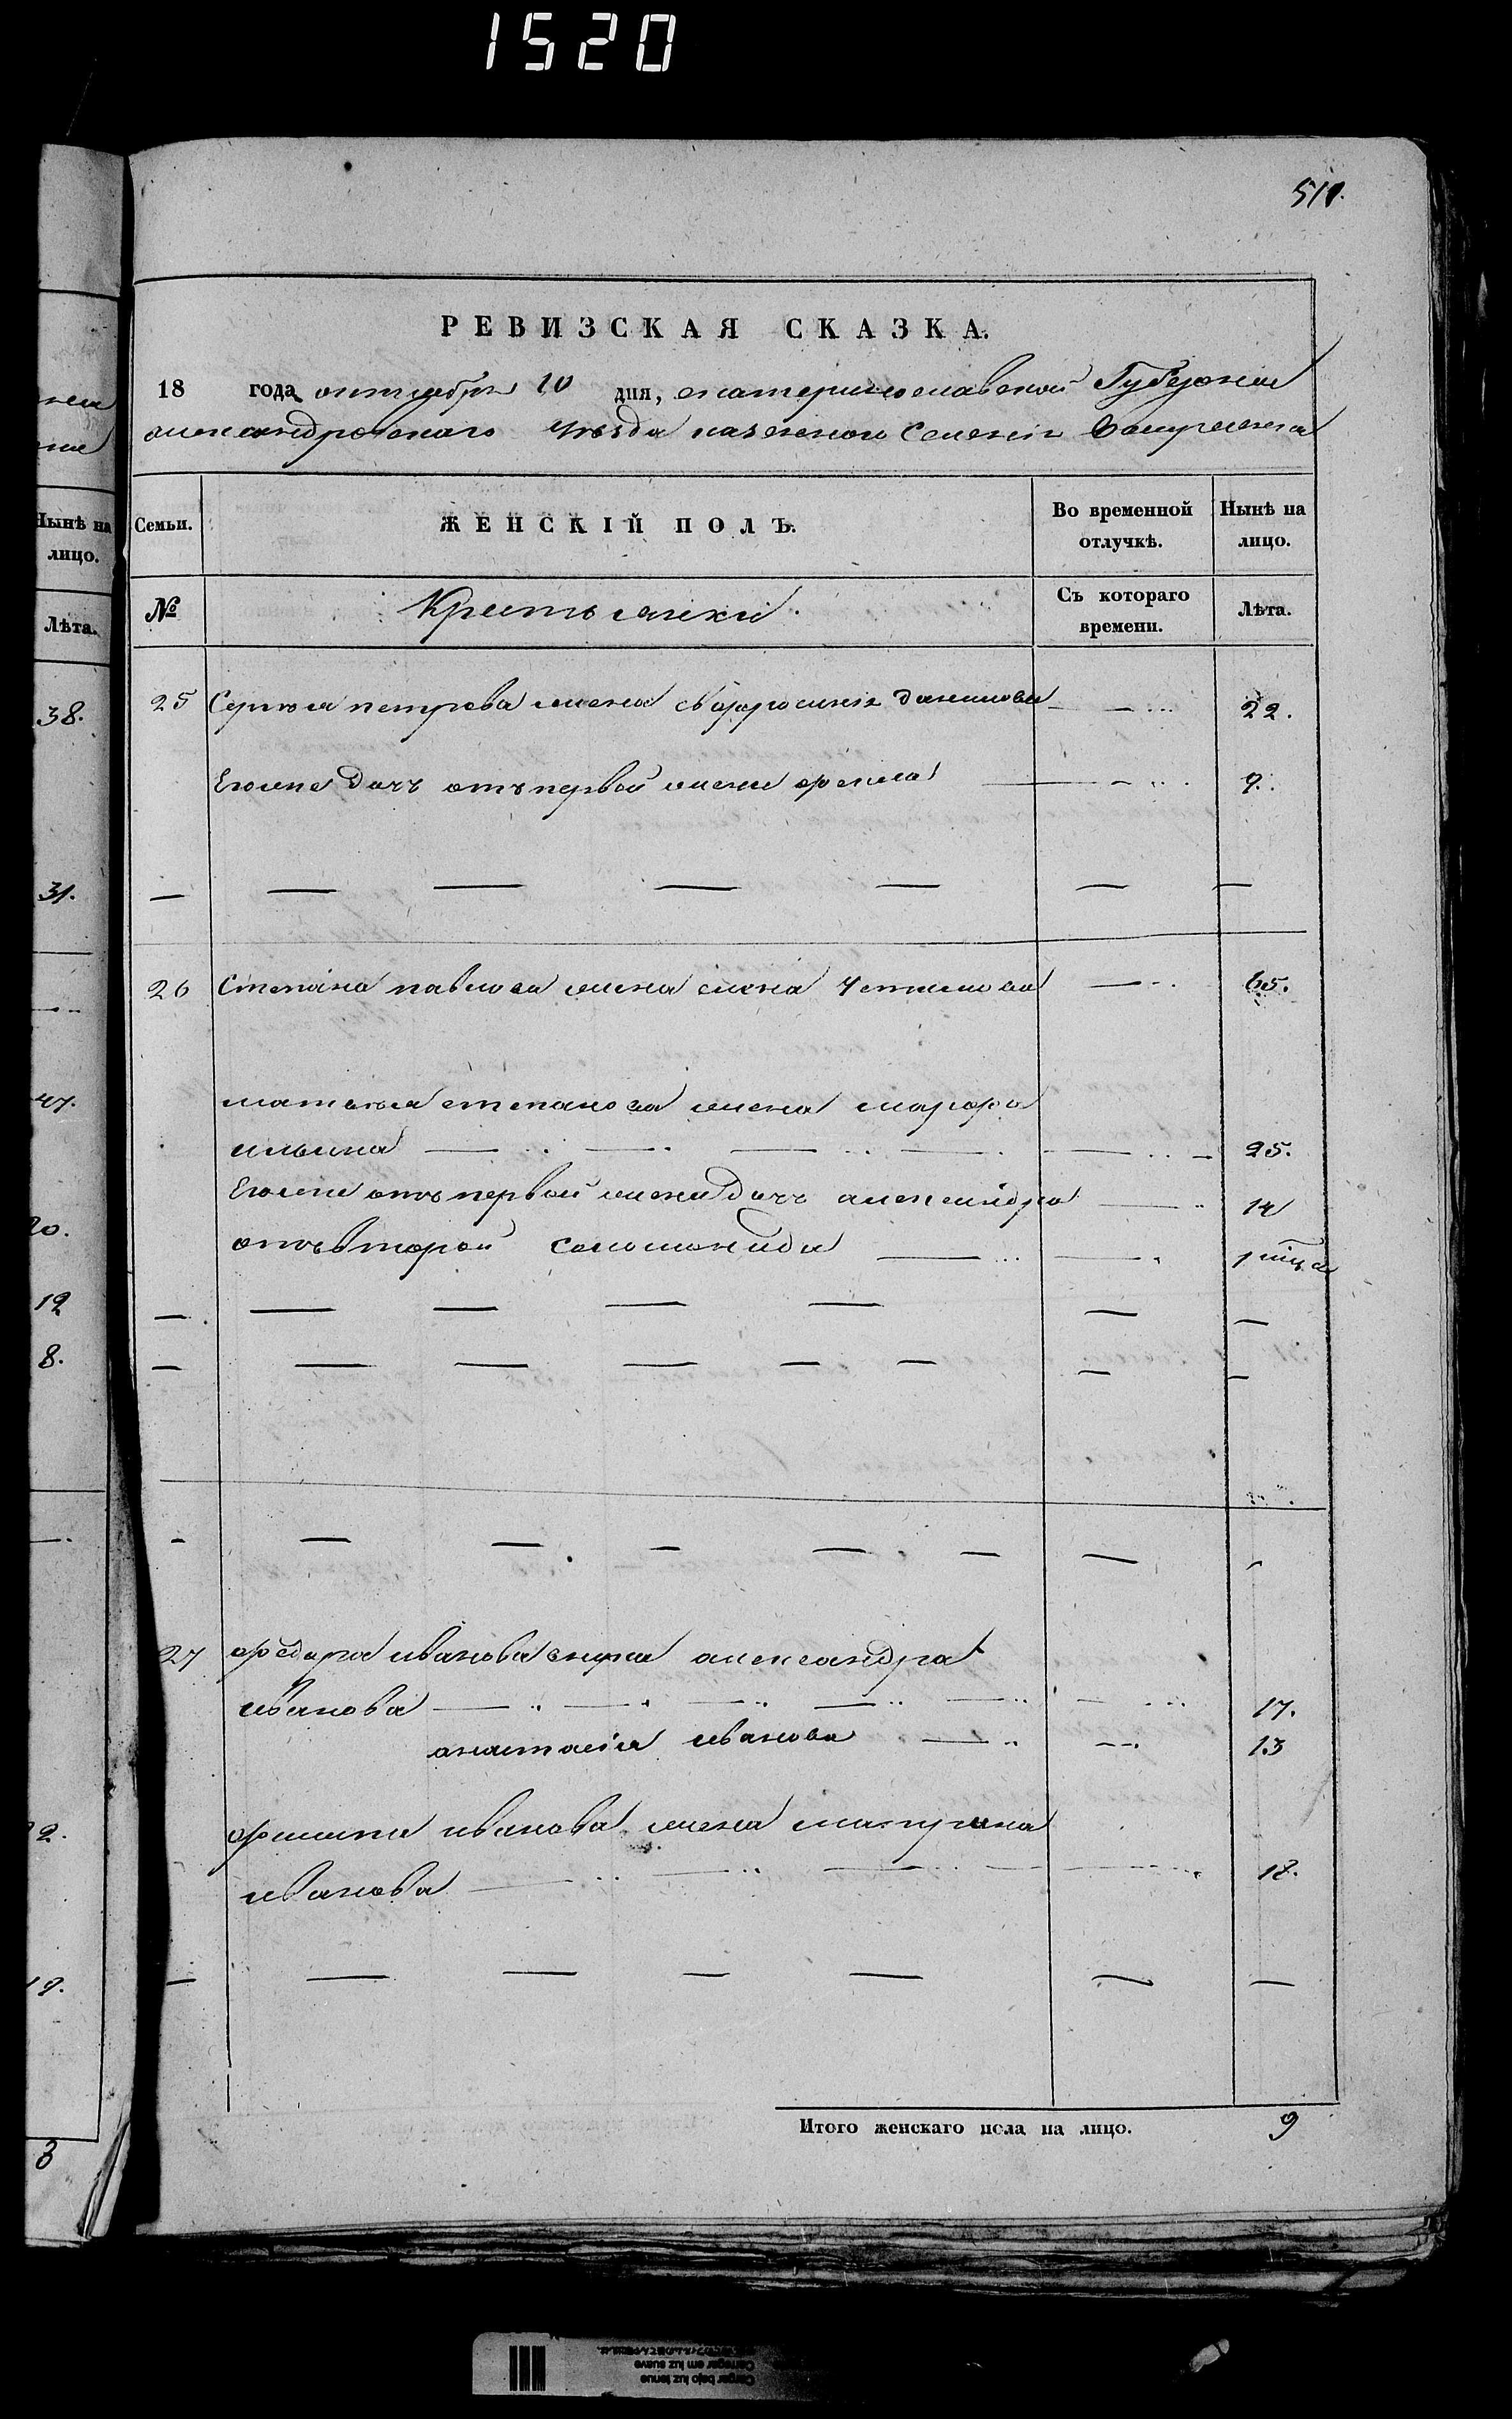 1520
511.
РЕВИЗСКАЯ СКАЗКА.
18 года октября 10 дня, екатеринославской Губернии
александровскаго уѣзда казенного Селения
Семьи. ЖЕНСКІЙ ПОЛЪ. Во временной отлучкѣ. Нынѣ на лицо.
№ Крестьянки. Съ котораго времени. Лѣта.
25 Сергѣя петрова жена Евфросиния данилова 22.
Егоже дочь отъ первой жены фекла 9.
26 Степана павлова жена елена 65.
матвѣя степанова жена марфа
ильина 25.
Егоже отъ первой жены дочь александра 14
отъ второй соломонида 1 мѣца
27 федора иванова внука александра
иванова 17.
анастасія иванова 13
филипа иванова жена матрона
иванова 18.
Итого женскаго пола на лицо. 9
Нынѣ на
лицо.
Лѣта.
38.
31.
47.
20.
12
8.